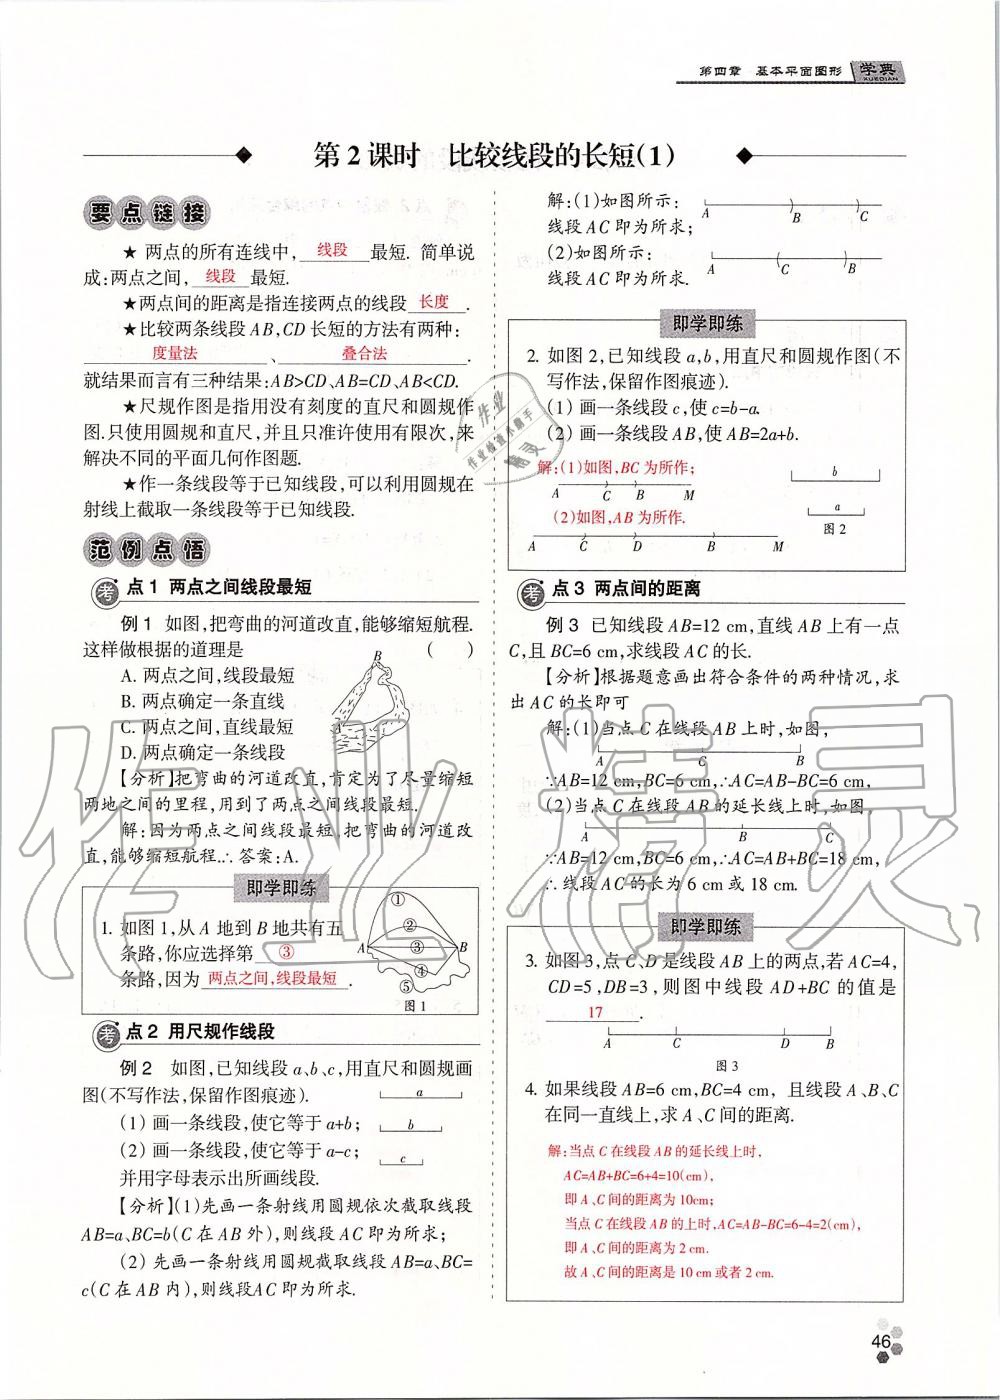 第四章 基本平面图形 学典
XUEDIAN
第2课时 比较线段的长短(1)
要点链接
★ 两点的所有连线中,线段最短. 简单说
成:两点之间,线段最短.
★两点间的距离是指连接两点的线段长度.
★比较两条线段AB,CD长短的方法有两种:
度量法、叠合法.
就结果而言有三种结果:AB>CD、AB=CD、AB<CD.
★尺规作图是指用没有刻度的直尺和圆规作
图.只使用圆规和直尺,并且只准许使用有限次,来
解决不同的平面几何作图题.
★作一条线段等于已知线段,可以利用圆规在
射线上截取一条线段等于已知线段.
范例点悟
考点1 两点之间线段最短
例1 如图,把弯曲的河道改直,能够缩短航程.
这样做根据的道理是 ( )
A. 两点之间,线段最短
B. 两点确定一条直线
C. 两点之间,直线最短
D. 两点确定一条线段
B
A
【分析】把弯曲的河道改直,肯定为了尽量缩短
两地之间的里程,用到了两点之间线段最短.
解:因为两点之间线段最短,把弯曲的河道改
直,能够缩短航程.∴ 答案:A.
即学即练
1. 如图1,从A地到B地共有五
条路,你应选择第 ③
条路,因为 两点之间,线段最短 .
①
②
A ③ B
④
⑤
图1
考点2 用尺规作线段
例2 如图,已知线段a、b、c,用直尺和圆规画
图(不写作法,保留作图痕迹).
(1) 画一条线段,使它等于a+b;
(2) 画一条线段,使它等于a-c;
并用字母表示出所画线段.
a
b
c
【分析】(1)先画一条射线用圆规依次截取线段
AB=a、BC=b(C在AB外),则线段AC即为所求;
(2) 先画一条射线用圆规截取线段AB=a、BC=
c(C在AB内),则线段AC即为所求.
解:(1)如图所示:
线段AC即为所求;
A B C
(2)如图所示:
线段AC即为所求.
A C B
即学即练
2. 如图2,已知线段a,b,用直尺和圆规作图(不
写作法,保留作图痕迹).
(1) 画一条线段c,使c=b-a.
(2) 画一条线段AB,使AB=2a+b.
解:(1)如图,BC为所作;
A C B M
(2)如图,AB为所作.
A C D B M
b
a
图2
考点3 两点间的距离
例3 已知线段AB=12 cm,直线AB上有一点
C,且BC=6 cm,求线段AC的长.
【分析】根据题意画出符合条件的两种情况,求
出AC的长即可
解:(1)当点C在线段AB上时,如图,
A C B
∵AB=12 cm,BC=6 cm,∴AC=AB-BC=6 cm,
(2)当点C在线段AB的延长线上时,如图,
A B C
∵AB=12 cm,BC=6 cm,∴AC=AB+BC=18 cm,
∴ 线段AC的长为6 cm或18 cm.
即学即练
3. 如图3,点C、D是线段AB上的两点,若AC=4,
CD=5,DB=3,则图中线段AD+BC的值是
17 .
A C D B
图3
4. 如果线段AB=6 cm,BC=4 cm, 且线段A、B、C
在同一直线上,求A、C间的距离.
解:当点C在线段AB的延长线上时,
AC=AB+BC=6+4=10(cm),
即A、C间的距离为10cm;
当点C在线段AB的上时,AC=AB-BC=6-4=2(cm),
即A、C间的距离为2 cm.
故A、C间的距离是10 cm或者2 cm.
46
作业精灵
作业
作业检查小帮手
精灵